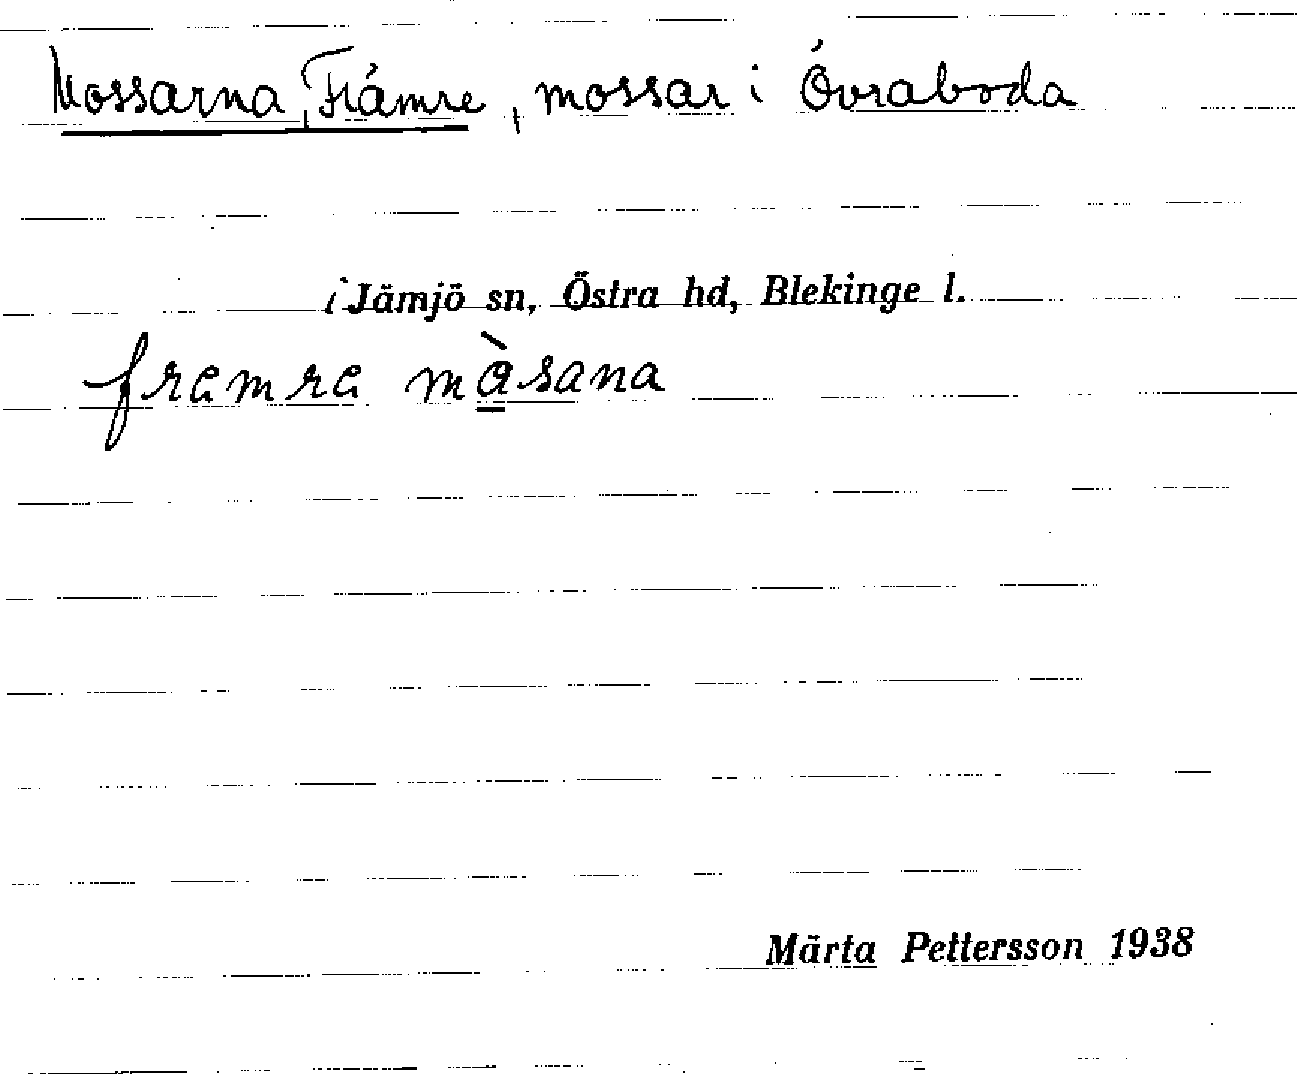 Mossarna, Främre, mossar i Övraboda
i Jämjö sn, Östra hd, Blekinge l.
framra màsana
Märta Pettersson 1938